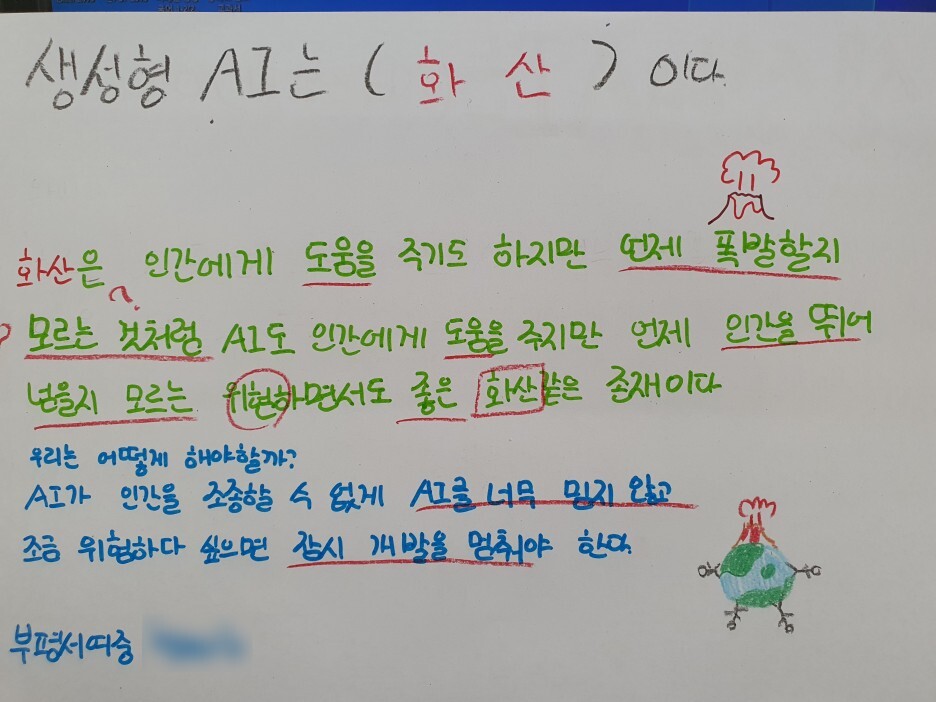 생성형 AI는 ( 화 산 ) 이다.
화산은 인간에게 도움을 주기도 하지만 언제 폭발할지
모르는 것처럼 AI도 인간에게 도움을 주지만 언제 인간을 뛰어
넘을지 모르는 위험하면서도 좋은 화산같은 존재이다
우리는 어떻게 해야할까?
AI가 인간을 조종할 수 없게 AI를 너무 믿지 않고
조금 위험하다 싶으면 잠시 개발을 멈춰야 한다.
부평서여중